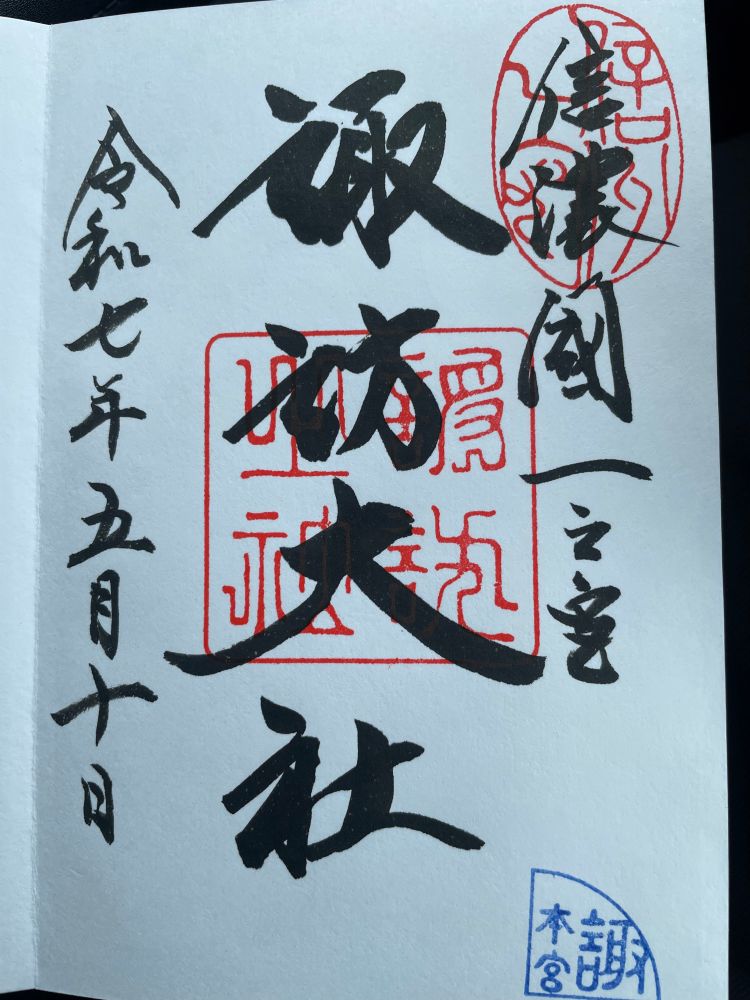 信濃國一之宮
諏訪大社
令和七年五月十日
諏
本宮